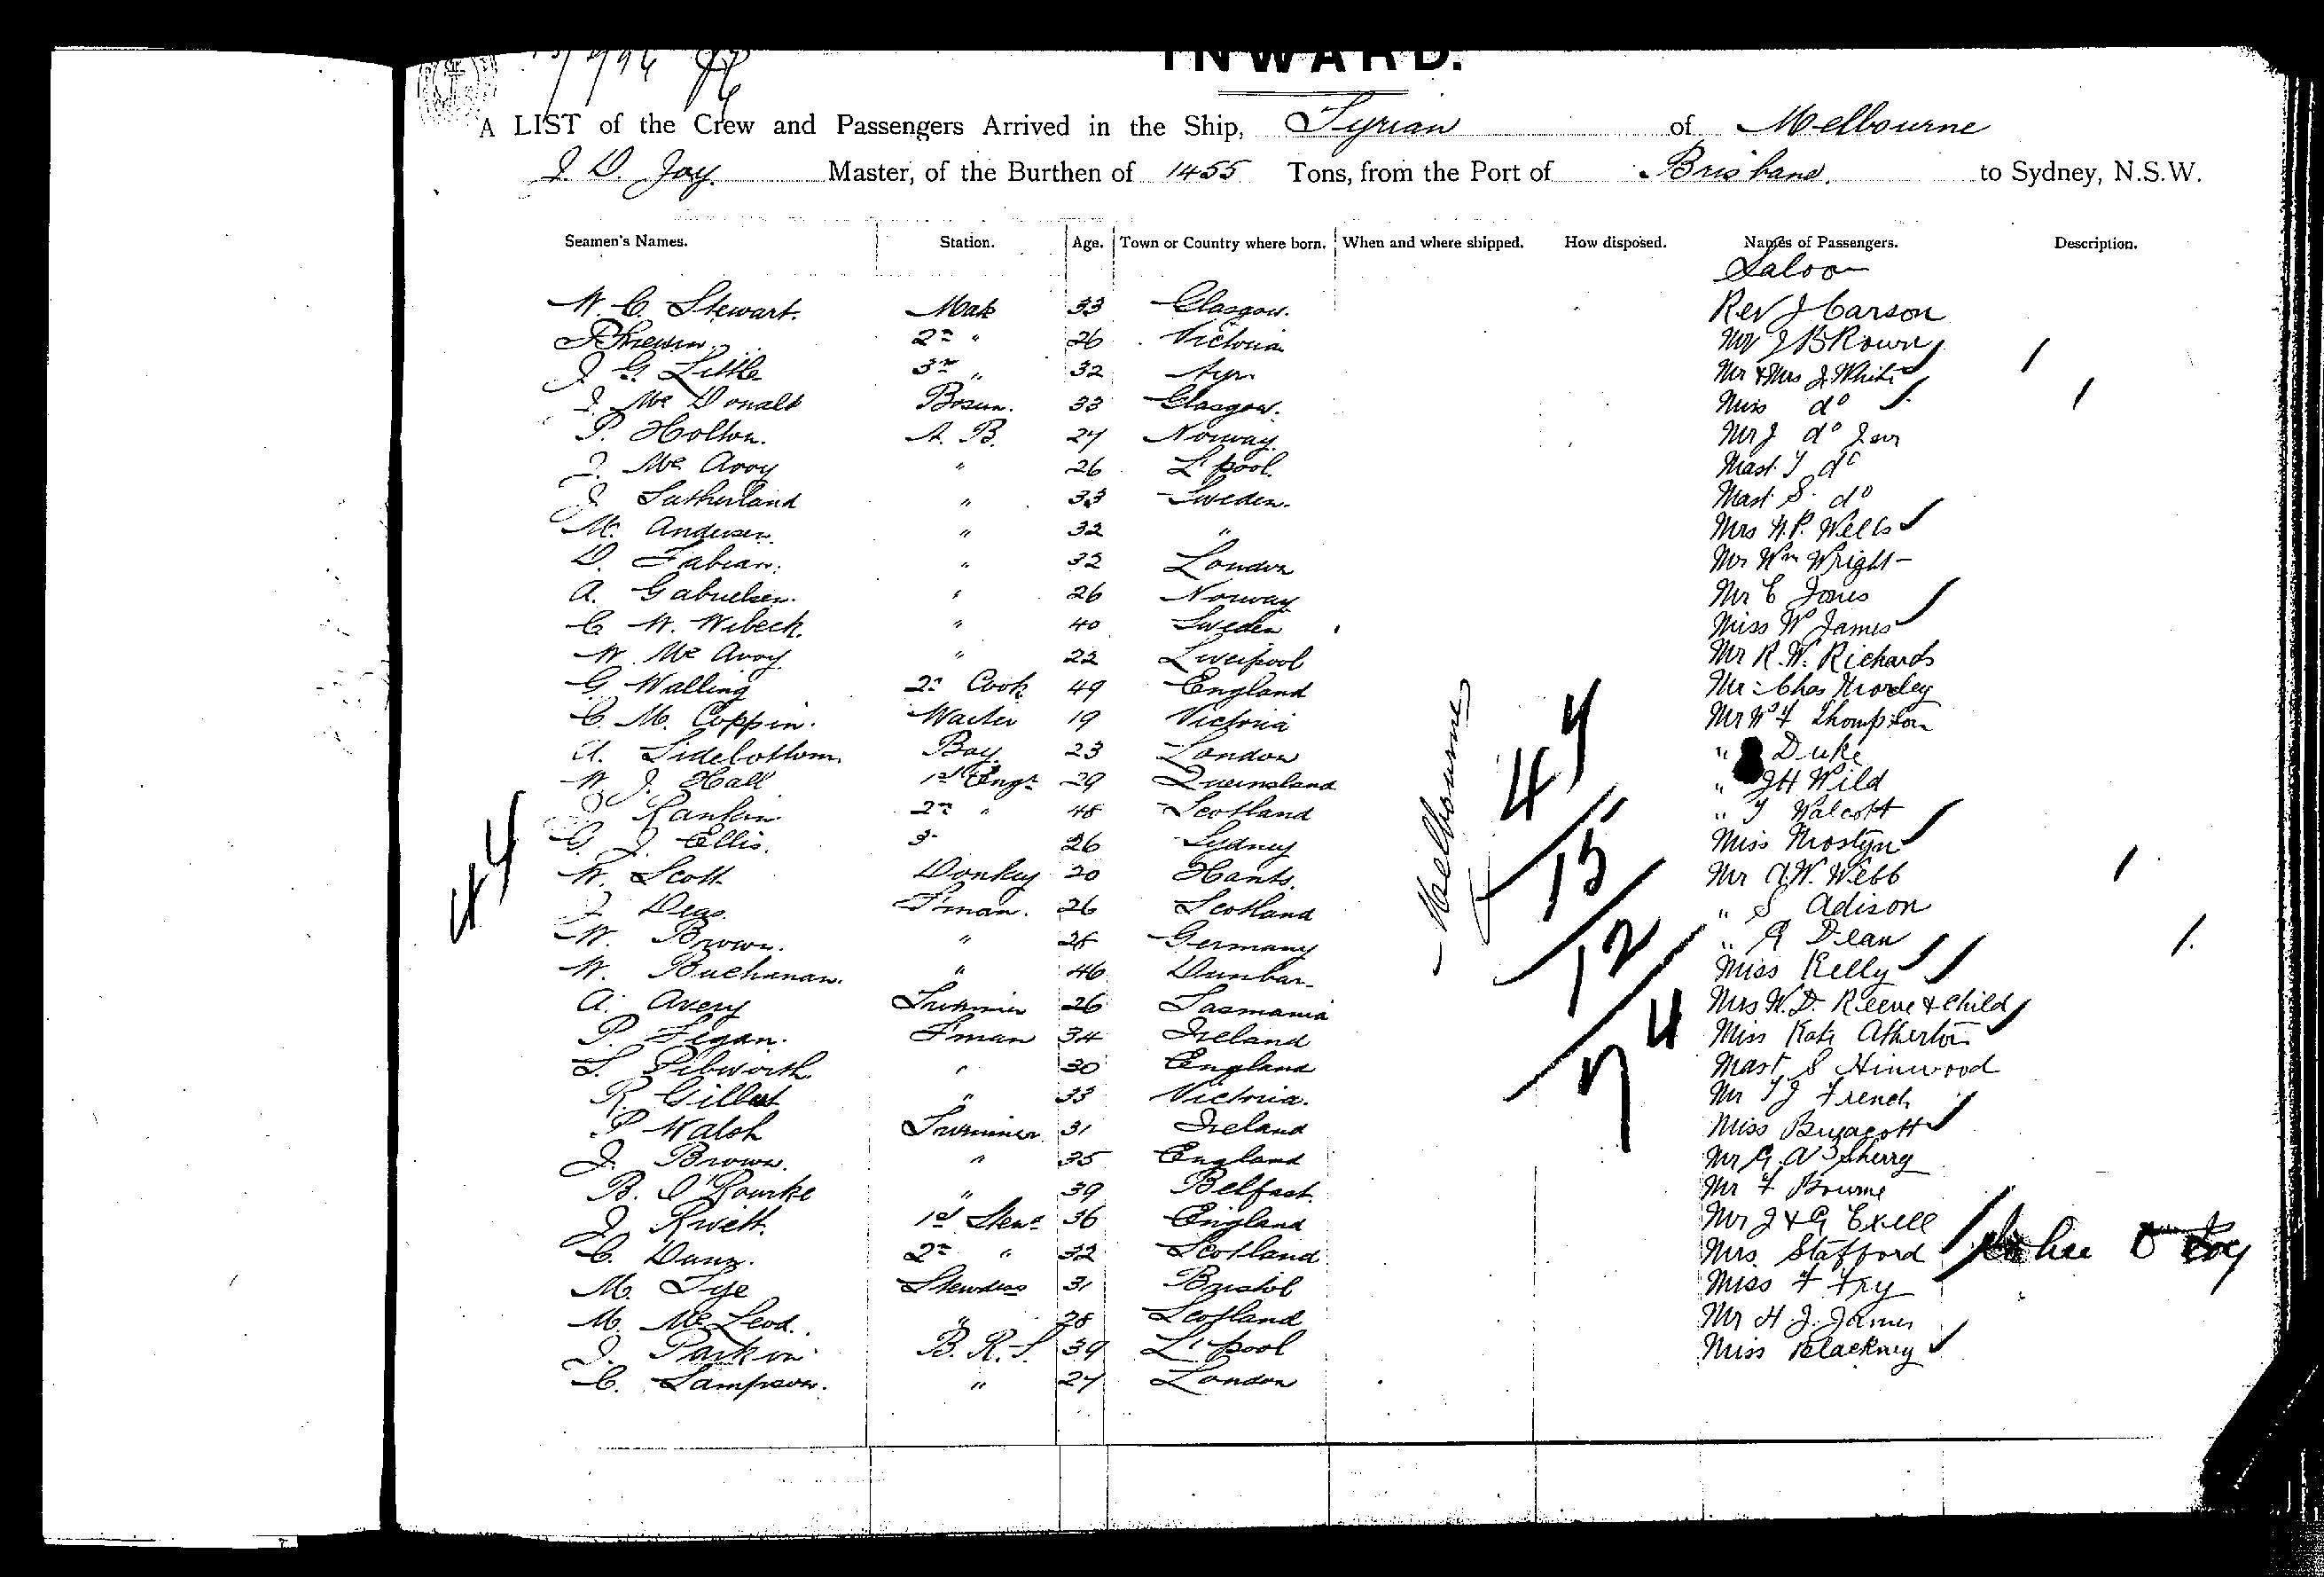 INWARD.
A LIST of the Crew and Passengers Arrived in the Ship, Tyrian of Melbourne
J. D. Joy. Master, of the Burthen of 1455 Tons, from the Port of Brisbane. to Sydney, N.S.W.
Seamen's Names. Station. Age. Town or Country where born. When and where shipped. How disposed. Names of Passengers. Description.
Saloon
W. C. Stewart. Mate 33 Glasgow. Rev J Carson
2nd " 26 Victoria Mr J Brown
J. G. Little 3rd " 32 Ayr. Mr & Mrs J. White
J. McDonald Bosun. 33 Glasgow. Miss do
P. Holton. A. B. 27 Norway. Mr J do Junr
J. McAvoy " 26 L'pool. Mast. T do
J. Sutherland " 33 Sweden. Mast. S. do
M. Andersen. " 32 " Mrs H.P. Wells
D. Fabian. " 32 London Mr Wm Wright
A. Gabrielsen. " 26 Norway Mr C Jones
C W. Wibeck. " 40 Sweden Miss W James
W. McAvoy " 22 Liverpool Mr R. W. Richards
G. Walling 2nd Cook 49 England Mr Chas Morley
C. M. Coppin. Waiter 19 Victoria Mr W F Thompson
A. Sidebottom Boy 23 London " Duke
W. J. Hall 1st Engr 29 Queensland " J H Wild
J Rankin. 2nd " 48 Scotland " T Walcott
G. J. Ellis. 3 26 Sydney Miss Mostyn
W. Scott Donkey 20 Hants. Mr A. W. Webb
J. Deas. F'man. 26 Scotland " S Adison
W. Brown. " 28 Germany " G Dean
W. Buchanan. " 46 Dunbar. Miss Kelly
A. Avery Trimmer 26 Tasmania Mrs W. D. Reeve & Child
P. Fegan. F'man 34 Ireland Miss Kate Atherton
S. Pibworth " 30 England Mast S Hinwood
R. Gilbert " 33 Victoria. Mr T J French
P Walsh Trimmer 31 Ireland Miss Buzacott
J. Brown. " 35 England Mr G. A. Sherry
B. O'Rourke " 39 Belfast. Mr F Bourne
J. Rivett. 1st Stewd 36 England Mr J & G Exell
C. Dunn. 2nd " 32 Scotland Mrs. Stafford
M. Tye Stewdess 31 Bristol Miss F Fry
M. McLeod. " 28 Scotland Mr H. J. James
J. Parkin B. R. S. 39 L'pool Miss Blackney
C. Sampson. " 27 London
Melbourne
44
47
15
12
74
John D Joy